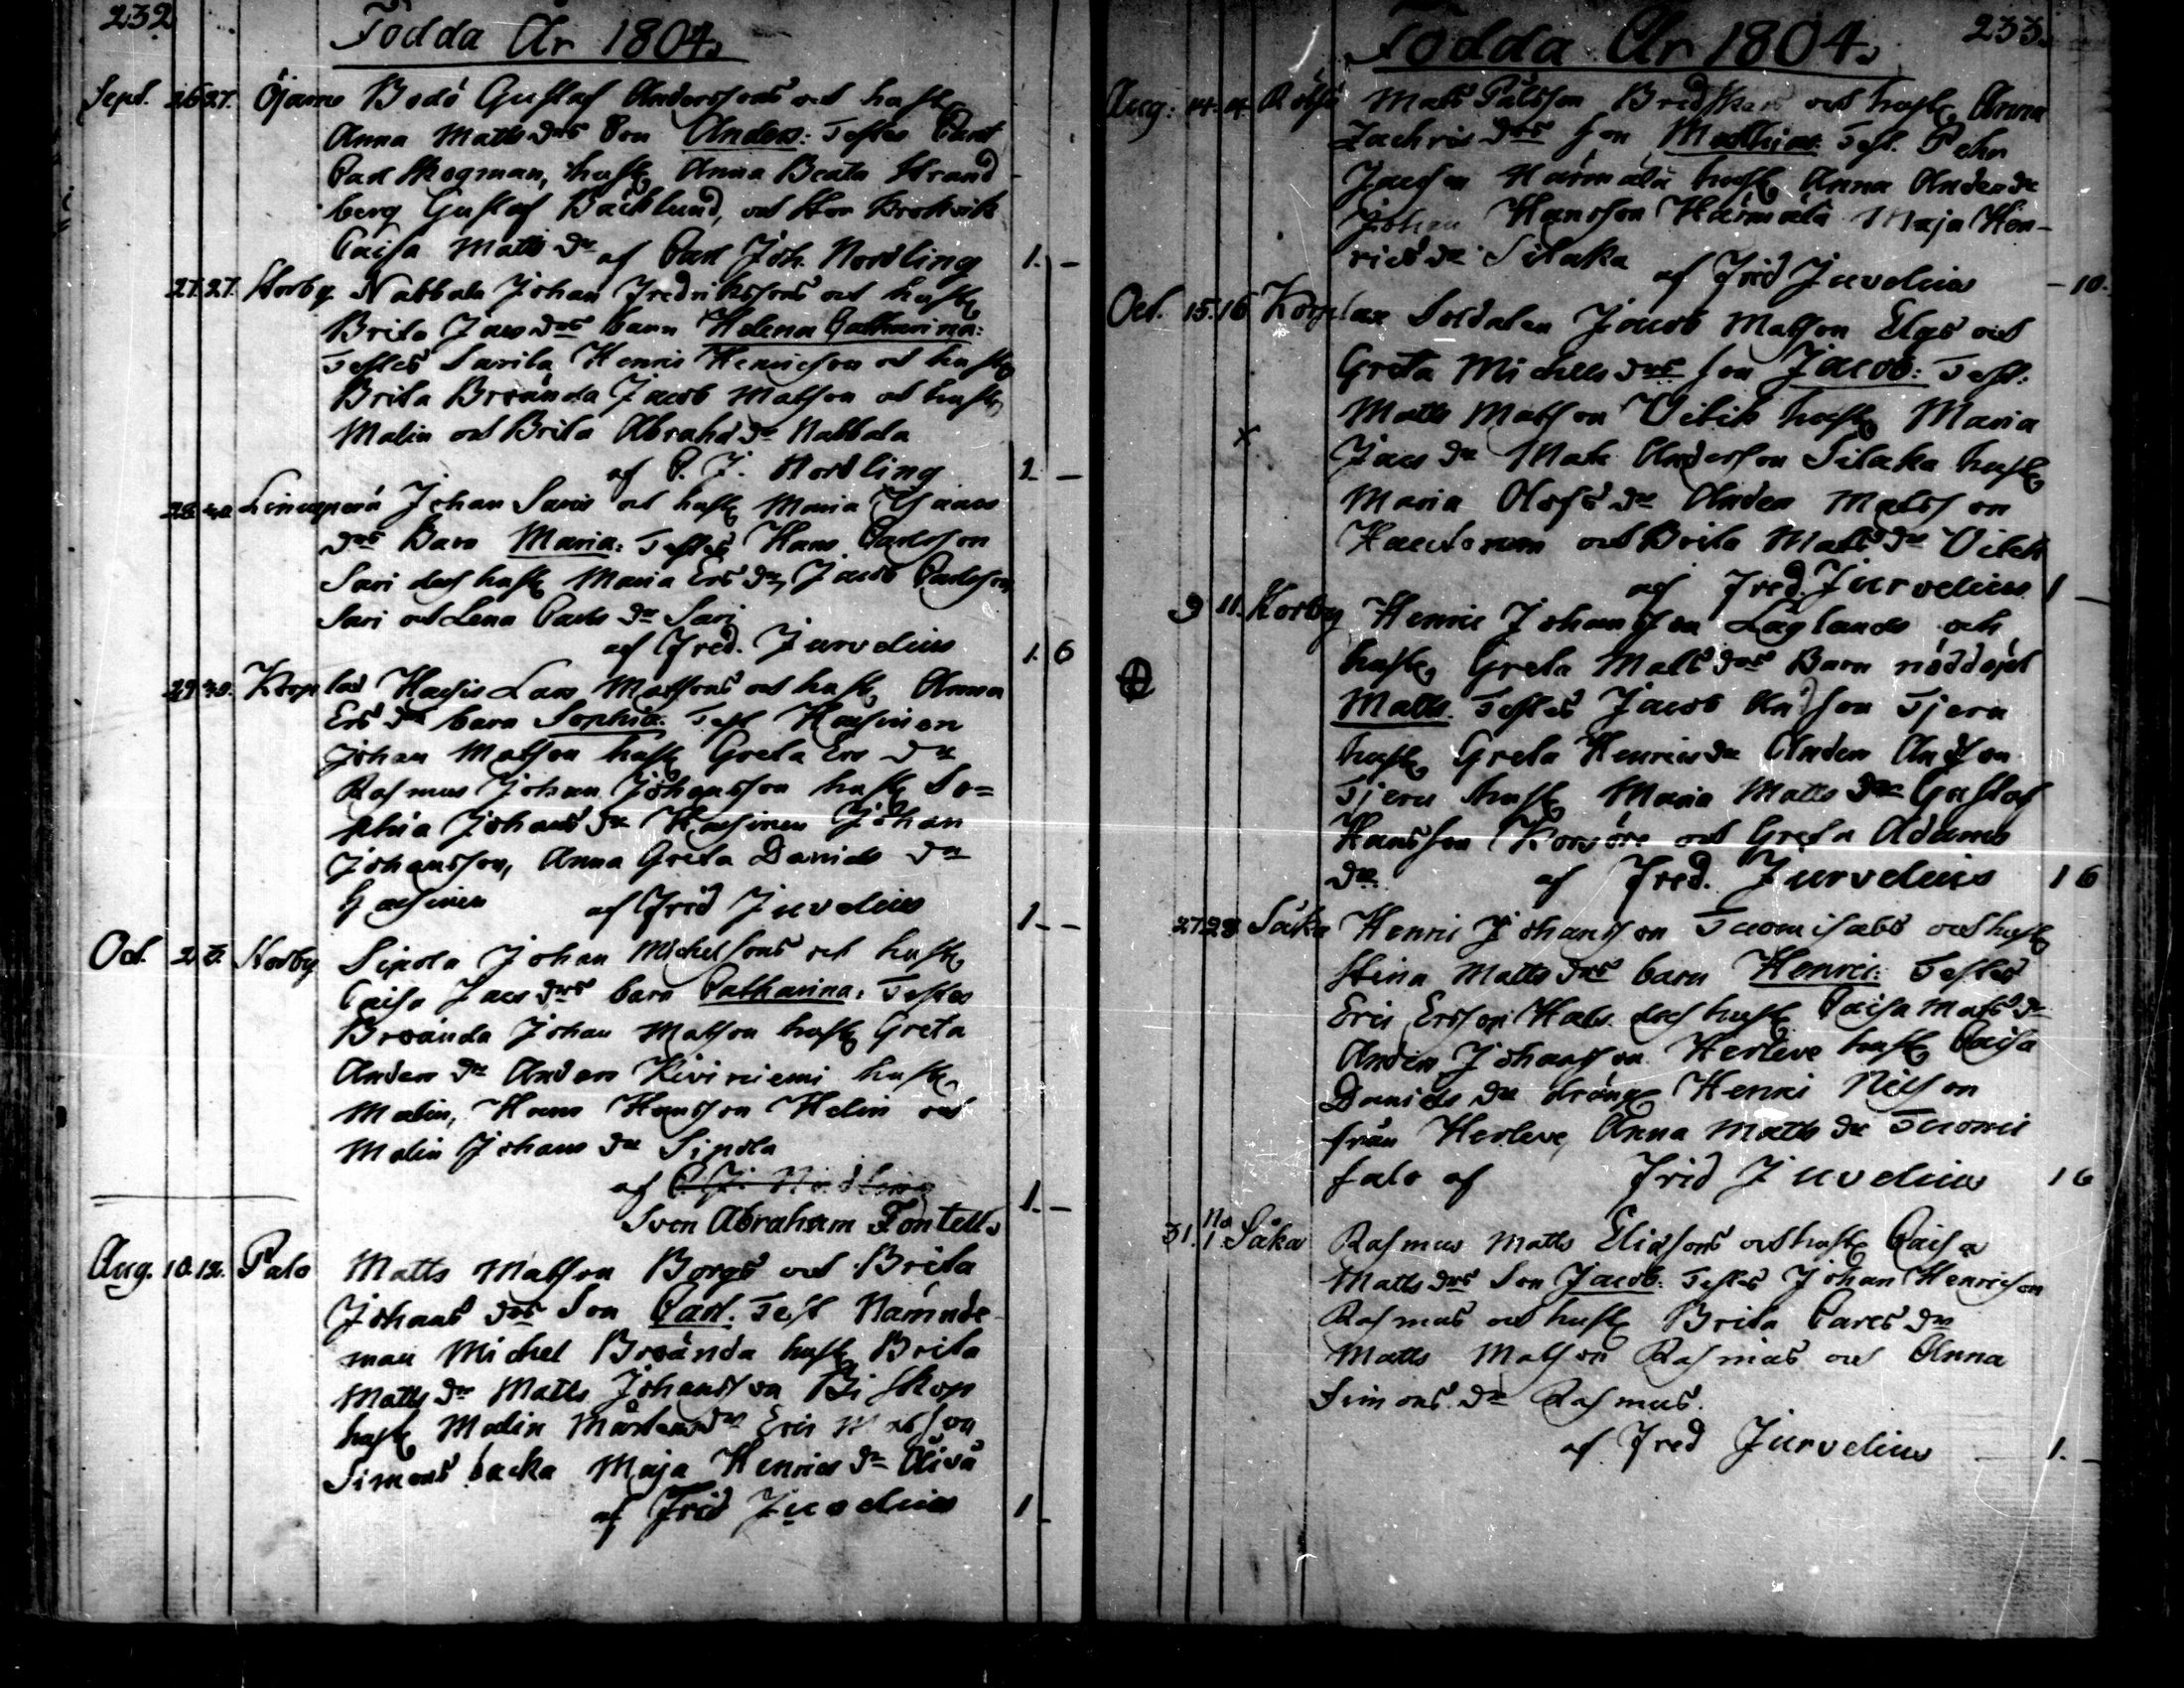 232
Födda År 1804.
Sept. 26 27. Öjamo Bodö Gustaf Anderssons och hust.
Anna Matts drs Son Anders: Testes Carl
Carl Skogman, hust. Anna Beata Strand
berg Gustaf Bäcklund, och Stor
Caisa Matts dr af Carl Joh. Nordling 1. –
27. 27. Storby Nabbala Johan Fredrikssons och hust.
Brita Jacs drs barn Helena Catharina:
Testes Sarila Henric Henricson och hust.
Brita Broända Jacob Matsson och hust.
Malin och Brita Abrahs dr Nabbala
af C. J. Nordling 1. –
28. 30. Johan Saris och hust. Maria
drs Barn Maria: Testes Hans Carlsson
Sari des hust. Maria Ers dr, Jacob Carlsson
Sari och Lena Carls dr Sari
af Fred. Jurvelius 1. 6
29. 30. Korp lax Lars Matssons och hust. Anna
Ers drs barn Sophia. Test
Johan Matsson hust. Greta Ers dr
Rasmus Johan Johansson hust. So=
phia Johans dr Johan
Johansson, Anna Greta Daniels dr
af Frid Juvelius 1. –
Oct. 2. 3. Storby Sipola Johan Michelsons och hust.
Caisa Jacs drs barn Catharina: Testes
Broända Johan Matson hust. Greta
Anders dr Anders Kiviniemi hust.
Malin, Hans Hansson Helin och
Malin Johans dr Sipola
af C. J. Nordling
Sven Abraham Fontell. 1. –
Aug. 10. 12. Palo Matts Matsson Borgs och Brita
Johans drs Son Carl. Test Nämnde-
man Michel Broända hust. Brita
Matts dr Matts Johansson Biskop
hust. Malin Mårtens dr Eric Matsson
Simons backa Maja Henrics dr
af Frid Juvelius 1 –
233.
Födda År 1804.
Aug: 14. Matts Pålsson och hust. Anna
Zachris drs Son Mathias. Test. Pehr
Jacsson Härmälä hust. Anna Anders dr
Johan Hansson Härmälä Maja Hen-
rics dr Silaka af Frid Juvelius – 10.
Oct. 15. 16 Korp lax Soldaten Jacob Matson Elgs och
Greta Michels drs son Jacob: Test.
Matts Matsson Vitik hust. Maria
Jacs dr Matts Andersson Silaka hust.
Maria Olofs dr Anders Matsson
och Brita Matts dr Vitik
af Fred. Jurvelius 1 –
9 11. Korby Henric Johansson Laglands och
hust. Greta Matts drs Barn nöddöpt
Matts. Testes Jacob Andson Tjern
hust. Greta Henrics dr Anders Andson
Tjern hust. Maria Matts dr Gustaf
Hansson och Greta Adams
dr. af Fred. Jurvelius 1 6
27. 28. Såka Henric Johansson Tuomisalo och hust.
Stina Matts drs barn Henric: Testes
Eric Ersson des hust. Caisa Mats dr
Anders Johansson Herleve hust. Caisa
Daniels dr dräng Henric Nilsson
från Herleve, Anna Matts dr Tuomi
salo af Frid Juvelius 1 6
31. 1. Såka Rasmus Matts Eliasons och hust. Caisa
Matts drs Son Jacob: Testes Johan Henricson
Rasmus och hust. Brita Carls dr
Matts Matsson Rasmus och Anna
Simons dr Rasmus.
af Fred Jurvelius 1. –